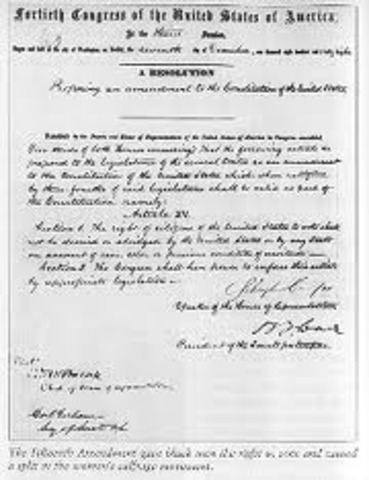 Fortieth Congress of the United States of America;
At the Third Session,
Begun and held at the city of Washington, on Monday, the seventh day of December, one thousand eight hundred and sixty-eight.
A RESOLUTION
Proposing an amendment to the Constitution of the United States.
Resolved by the Senate and House of Representatives of the United States of America in Congress assembled,
two-thirds of both Houses concurring) that the following article be
proposed to the legislatures of the several States as an amendment
to the Constitution of the United States which, when ratified
by three-fourths of said legislatures shall be valid as part of
the Constitution, namely:
Article XV.
Section 1. The right of citizens of the United States to vote shall
not be denied or abridged by the United States or by any State
on account of race, color, or previous condition of servitude.
Section 2. The Congress shall have power to enforce this article
by appropriate legislation.
Speaker of the House of Representatives
President of the Senate pro tempore
Clerk of House of Representatives
The Fifteenth Amendment gave black men the right to vote and caused
a split in the women's suffrage movement.